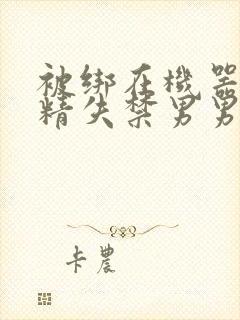 被绑在機器
精失禁男男
卡農